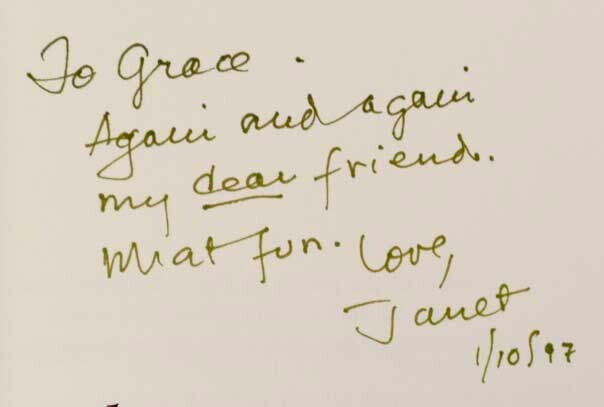 To Grace.
Again and again
my dear friend.
What fun. Love,
Janet
1/10/97